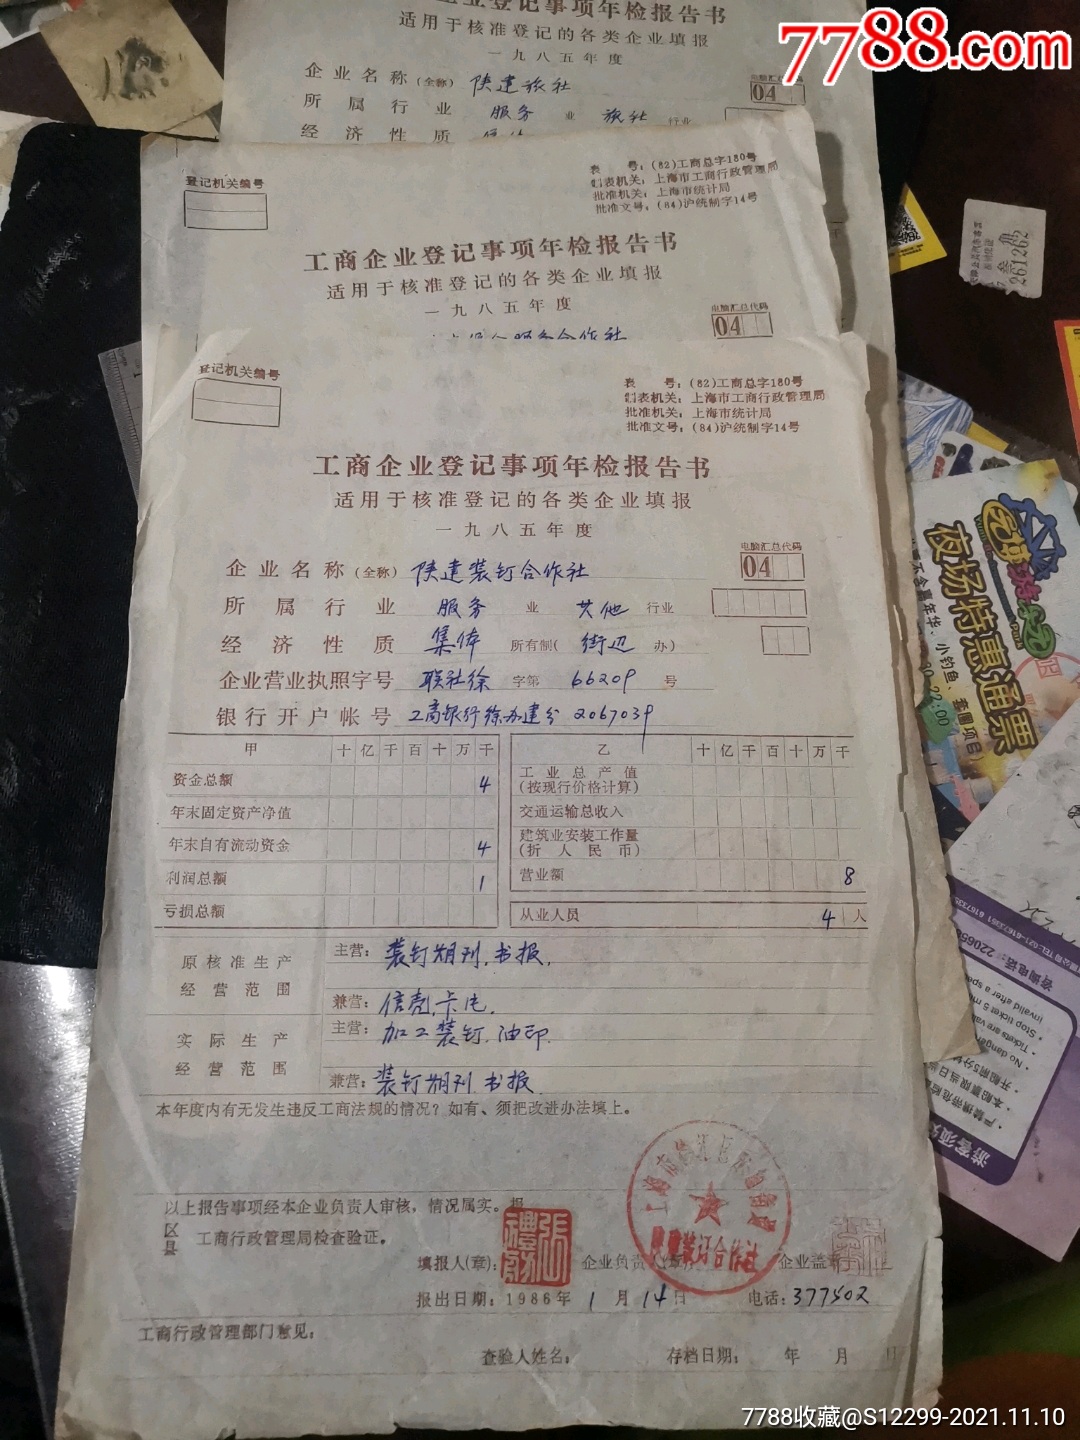 7788.com
企业登记事项年检报告书
适用于核准登记的各类企业填报
一九八五年度
电脑汇总代码
04
企业名称(全称) 陕建旅社
所属行业 服务 业 旅社 行业
经济性质 集体
登记机关编号
表 号:(82)工商总字180号
制表机关:上海市工商行政管理局
批准机关:上海市统计局
批准文号:(84)沪统制字14号
工商企业登记事项年检报告书
适用于核准登记的各类企业填报
一九八五年度
电脑汇总代码
04
服务合作社
登记机关编号
表 号:(82)工商总字180号
制表机关:上海市工商行政管理局
批准机关:上海市统计局
批准文号:(84)沪统制字14号
工商企业登记事项年检报告书
适用于核准登记的各类企业填报
一九八五年度
电脑汇总代码
04
企业名称(全称) 陕建装钉合作社
所属行业 服务 业 其他 行业
经济性质 集体 所有制( 街边 办)
企业营业执照字号 联社徐 字第 66209 号
银行开户帐号 工商银行徐办建分 2067039
甲 十 亿 千 百 十 万 千
乙 十 亿 千 百 十 万 千
资金总额 4
工业总产值
(按现行价格计算)
年末固定资产净值
交通运输总收入
年末自有流动资金 4
建筑业安装工作量
(折人民币)
利润总额 1
营业额 8
亏损总额
从业人员 4 人
原核准生产
经营范围
主营: 装钉期刊.书报.
兼营: 信壳.卡片.
实际生产
经营范围
主营: 加工装钉.油印.
兼营: 装钉期刊 书报
本年度内有无发生违反工商法规的情况?如有、须把改进办法填上。
以上报告事项经本企业负责人审核,情况属实。报
区
县
工商行政管理局检查验证。
填报人(章):
企业负责人(章)
企业盖章
报出日期:1986年 1 月 14 日
电话:377502
工商行政管理部门意见:
查验人姓名:
存档日期: 年 月 日
261262
夜场特惠通票
小钓鱼、套圈项目)
22:00
咨询电话:
No dangerous
Stop ticket 5 m
invalid after a spe
游客须知
7788收藏@S12299-2021.11.10